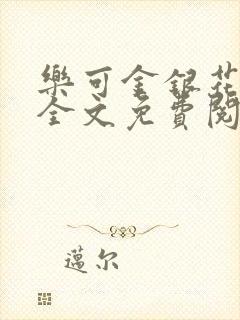 樂可金銀花
全文免費閱
邁尔